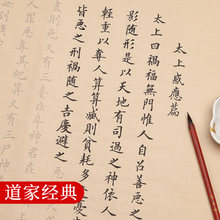 太上感應篇
太上曰禍福無門惟人自召善惡之
影隨形是以天地有司過之神依人
輕重以奪人算算減則貧耗多
皆惡之刑禍隨之吉慶避之
北斗神君在
又有三尸神
道家经典